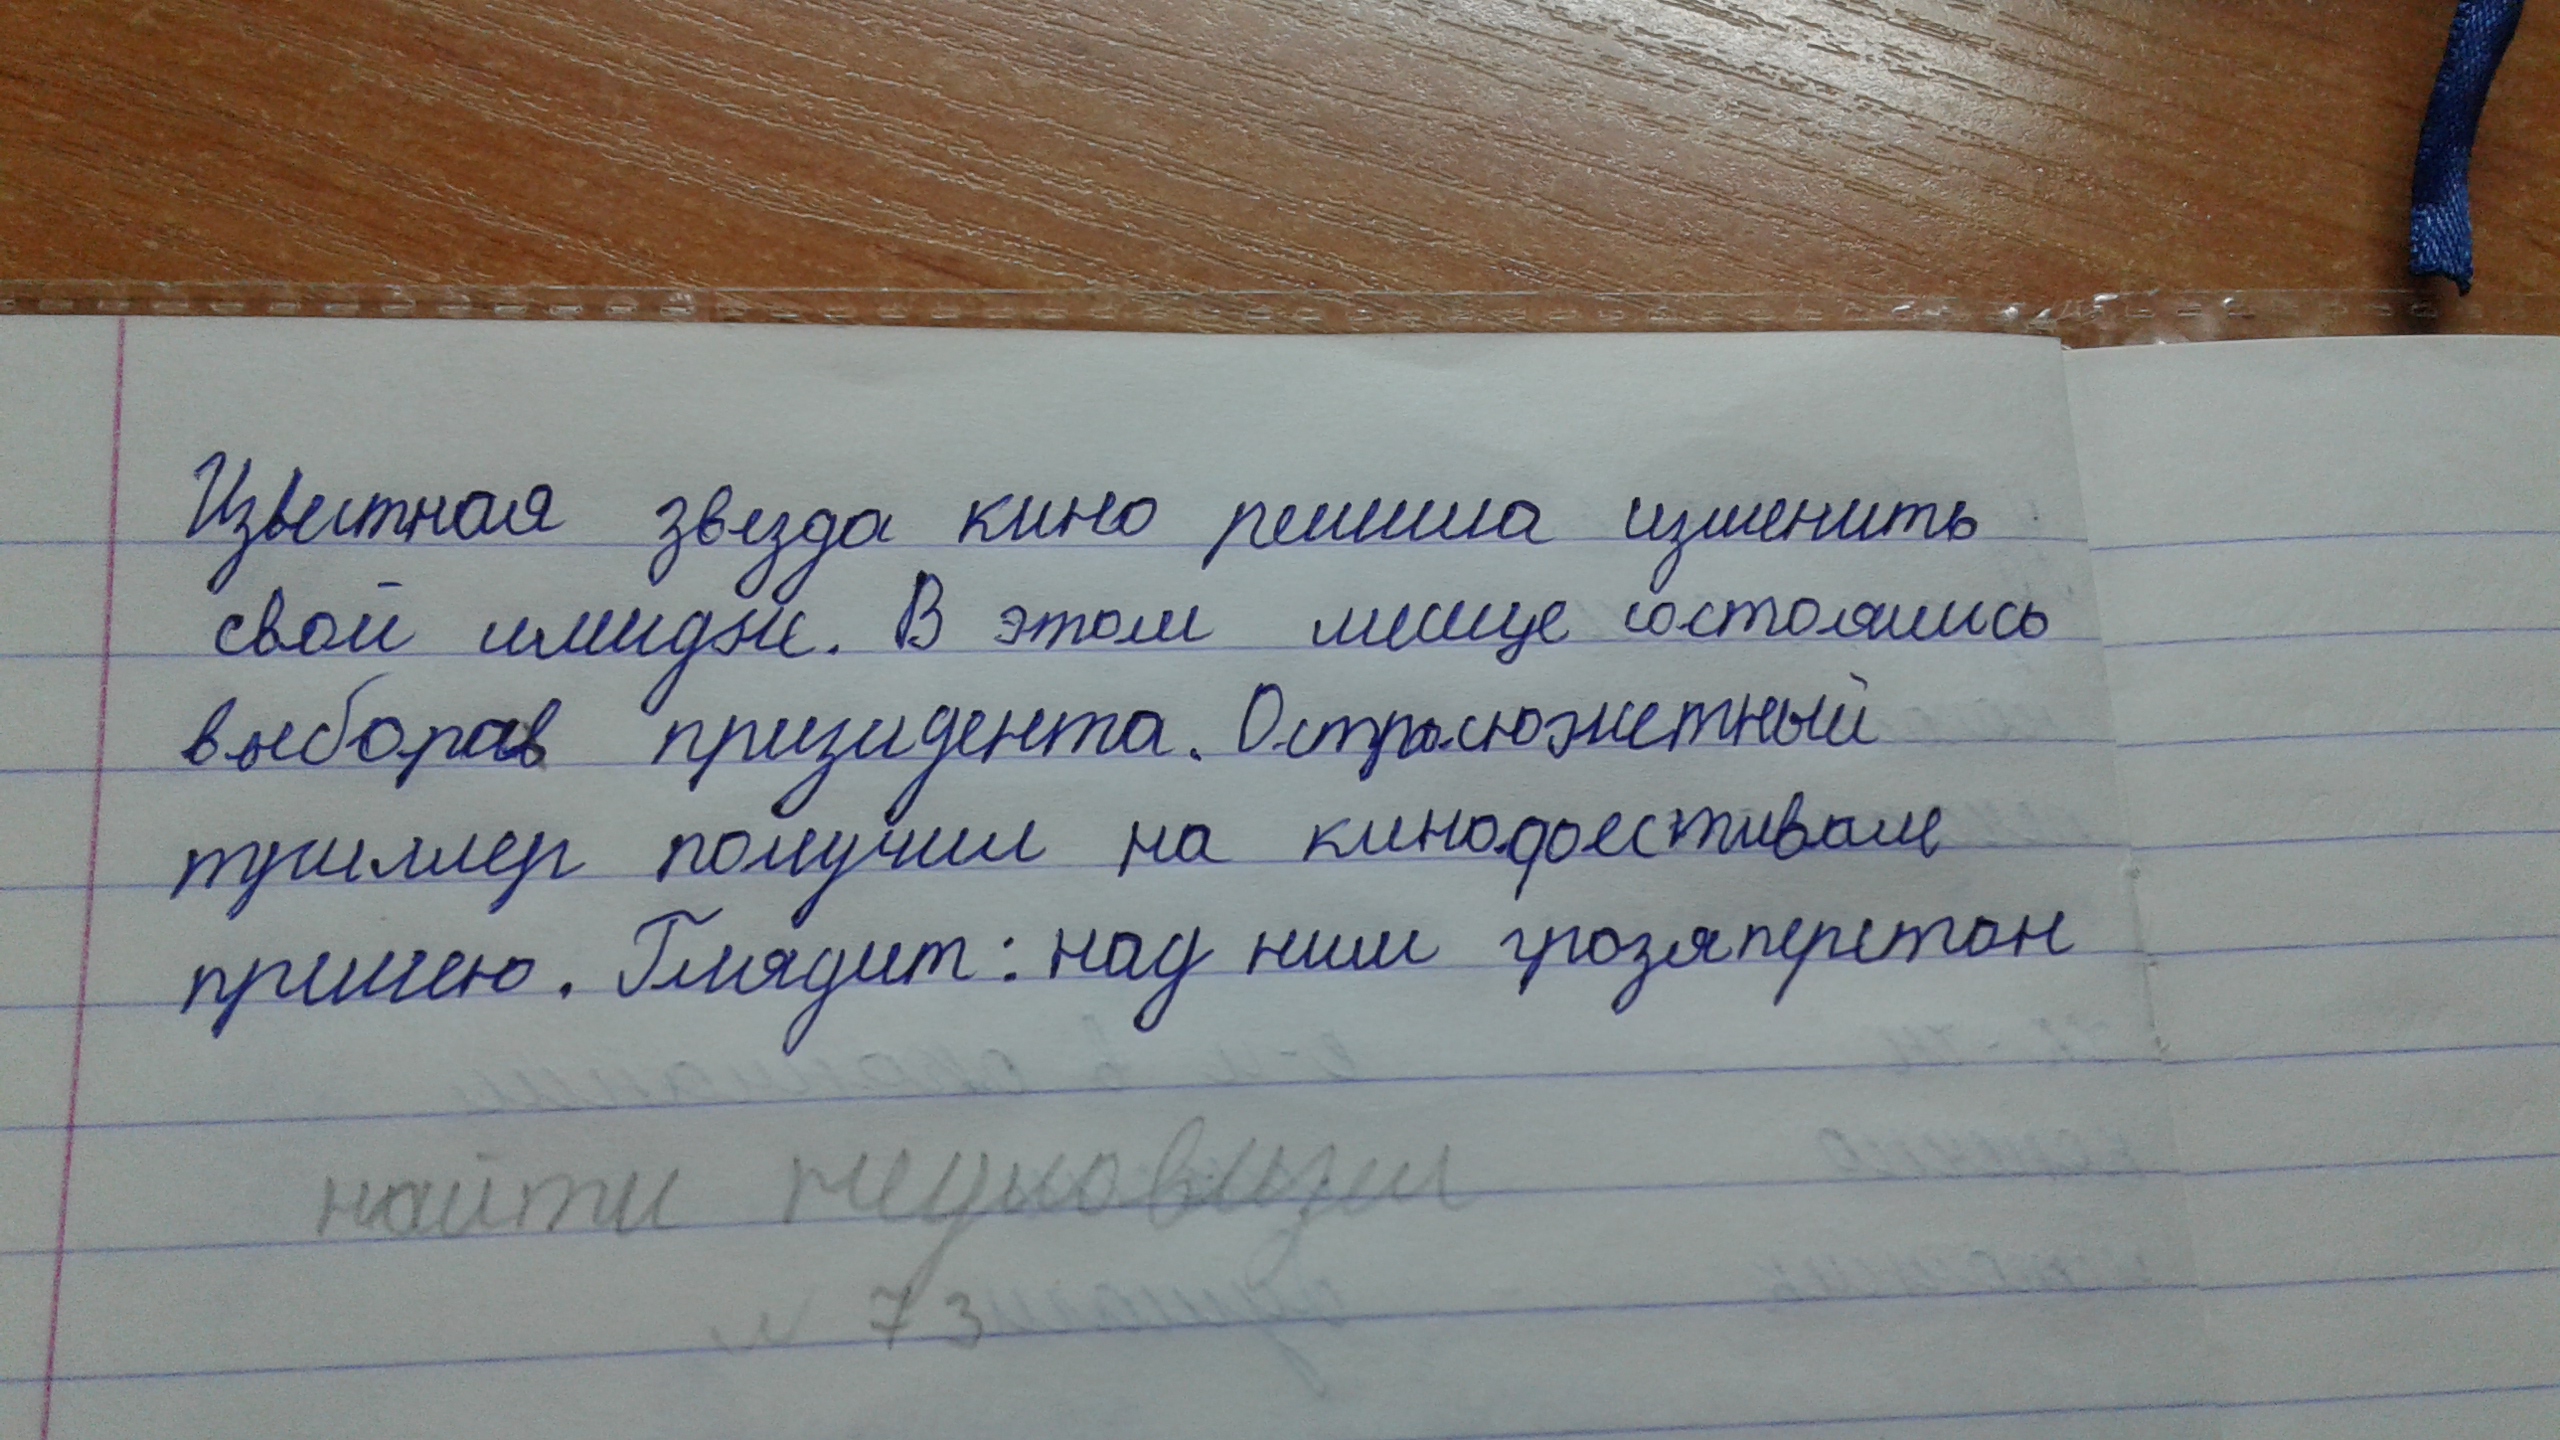 Известная звезда кино решила изменить
свой имидж. В этом месяце состоялись
выборав призидента. Остросюжетный
триллер получил на кинофестивале
примею. Глядит: над ним грозяперетон
найти неуновизм
№ 73